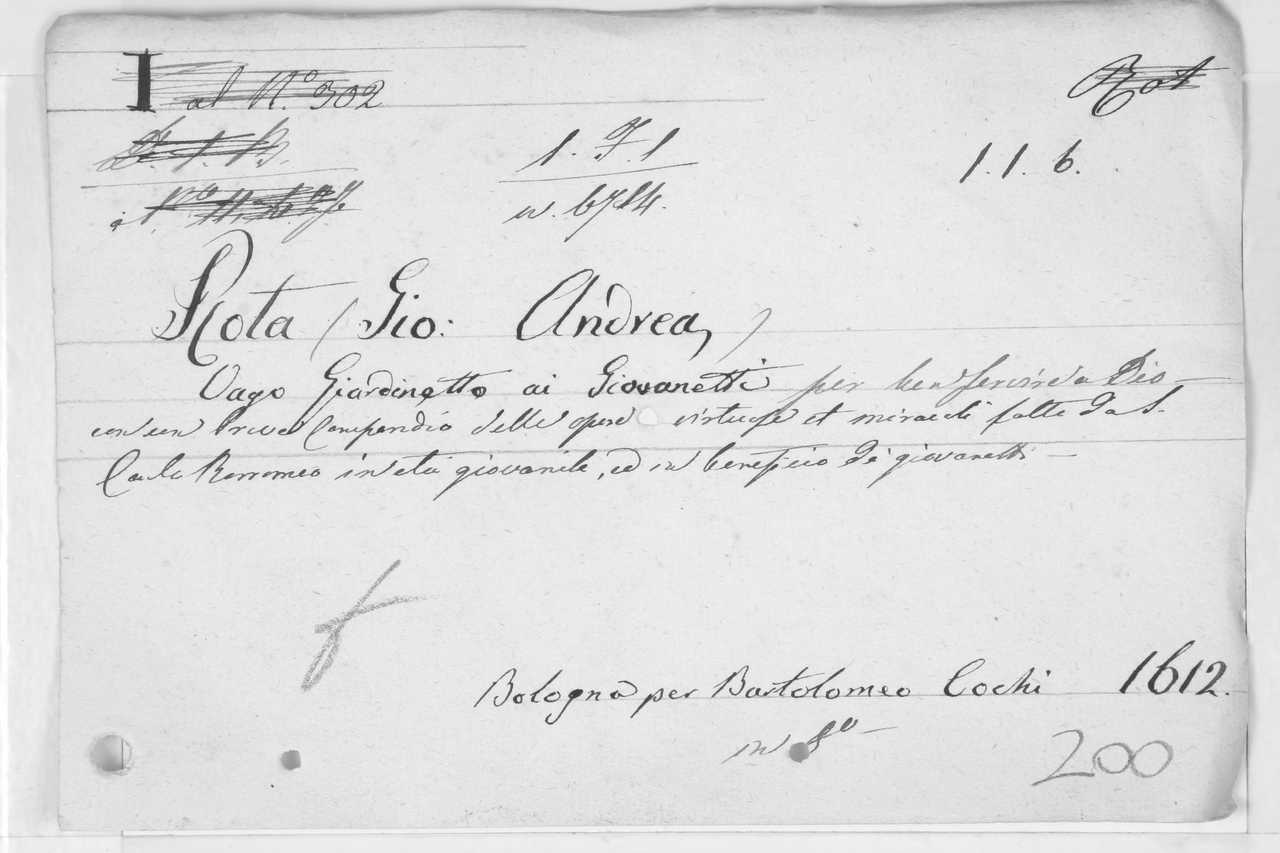 I al N.º 302 Rot
1. F. 1 1. 1. 6.
n. 6784.
Rota (Gio: Andrea)
Vago Giardinetto ai Giovanetti per ben servire a Dio
con un breve Compendio delle opere virtuose et miracoli fatte da S.
Carlo Borromeo in età giovanile, ed in beneficio de' giovanetti
f
Bologna per Bartolomeo Cochi 1612.
in 8º
200